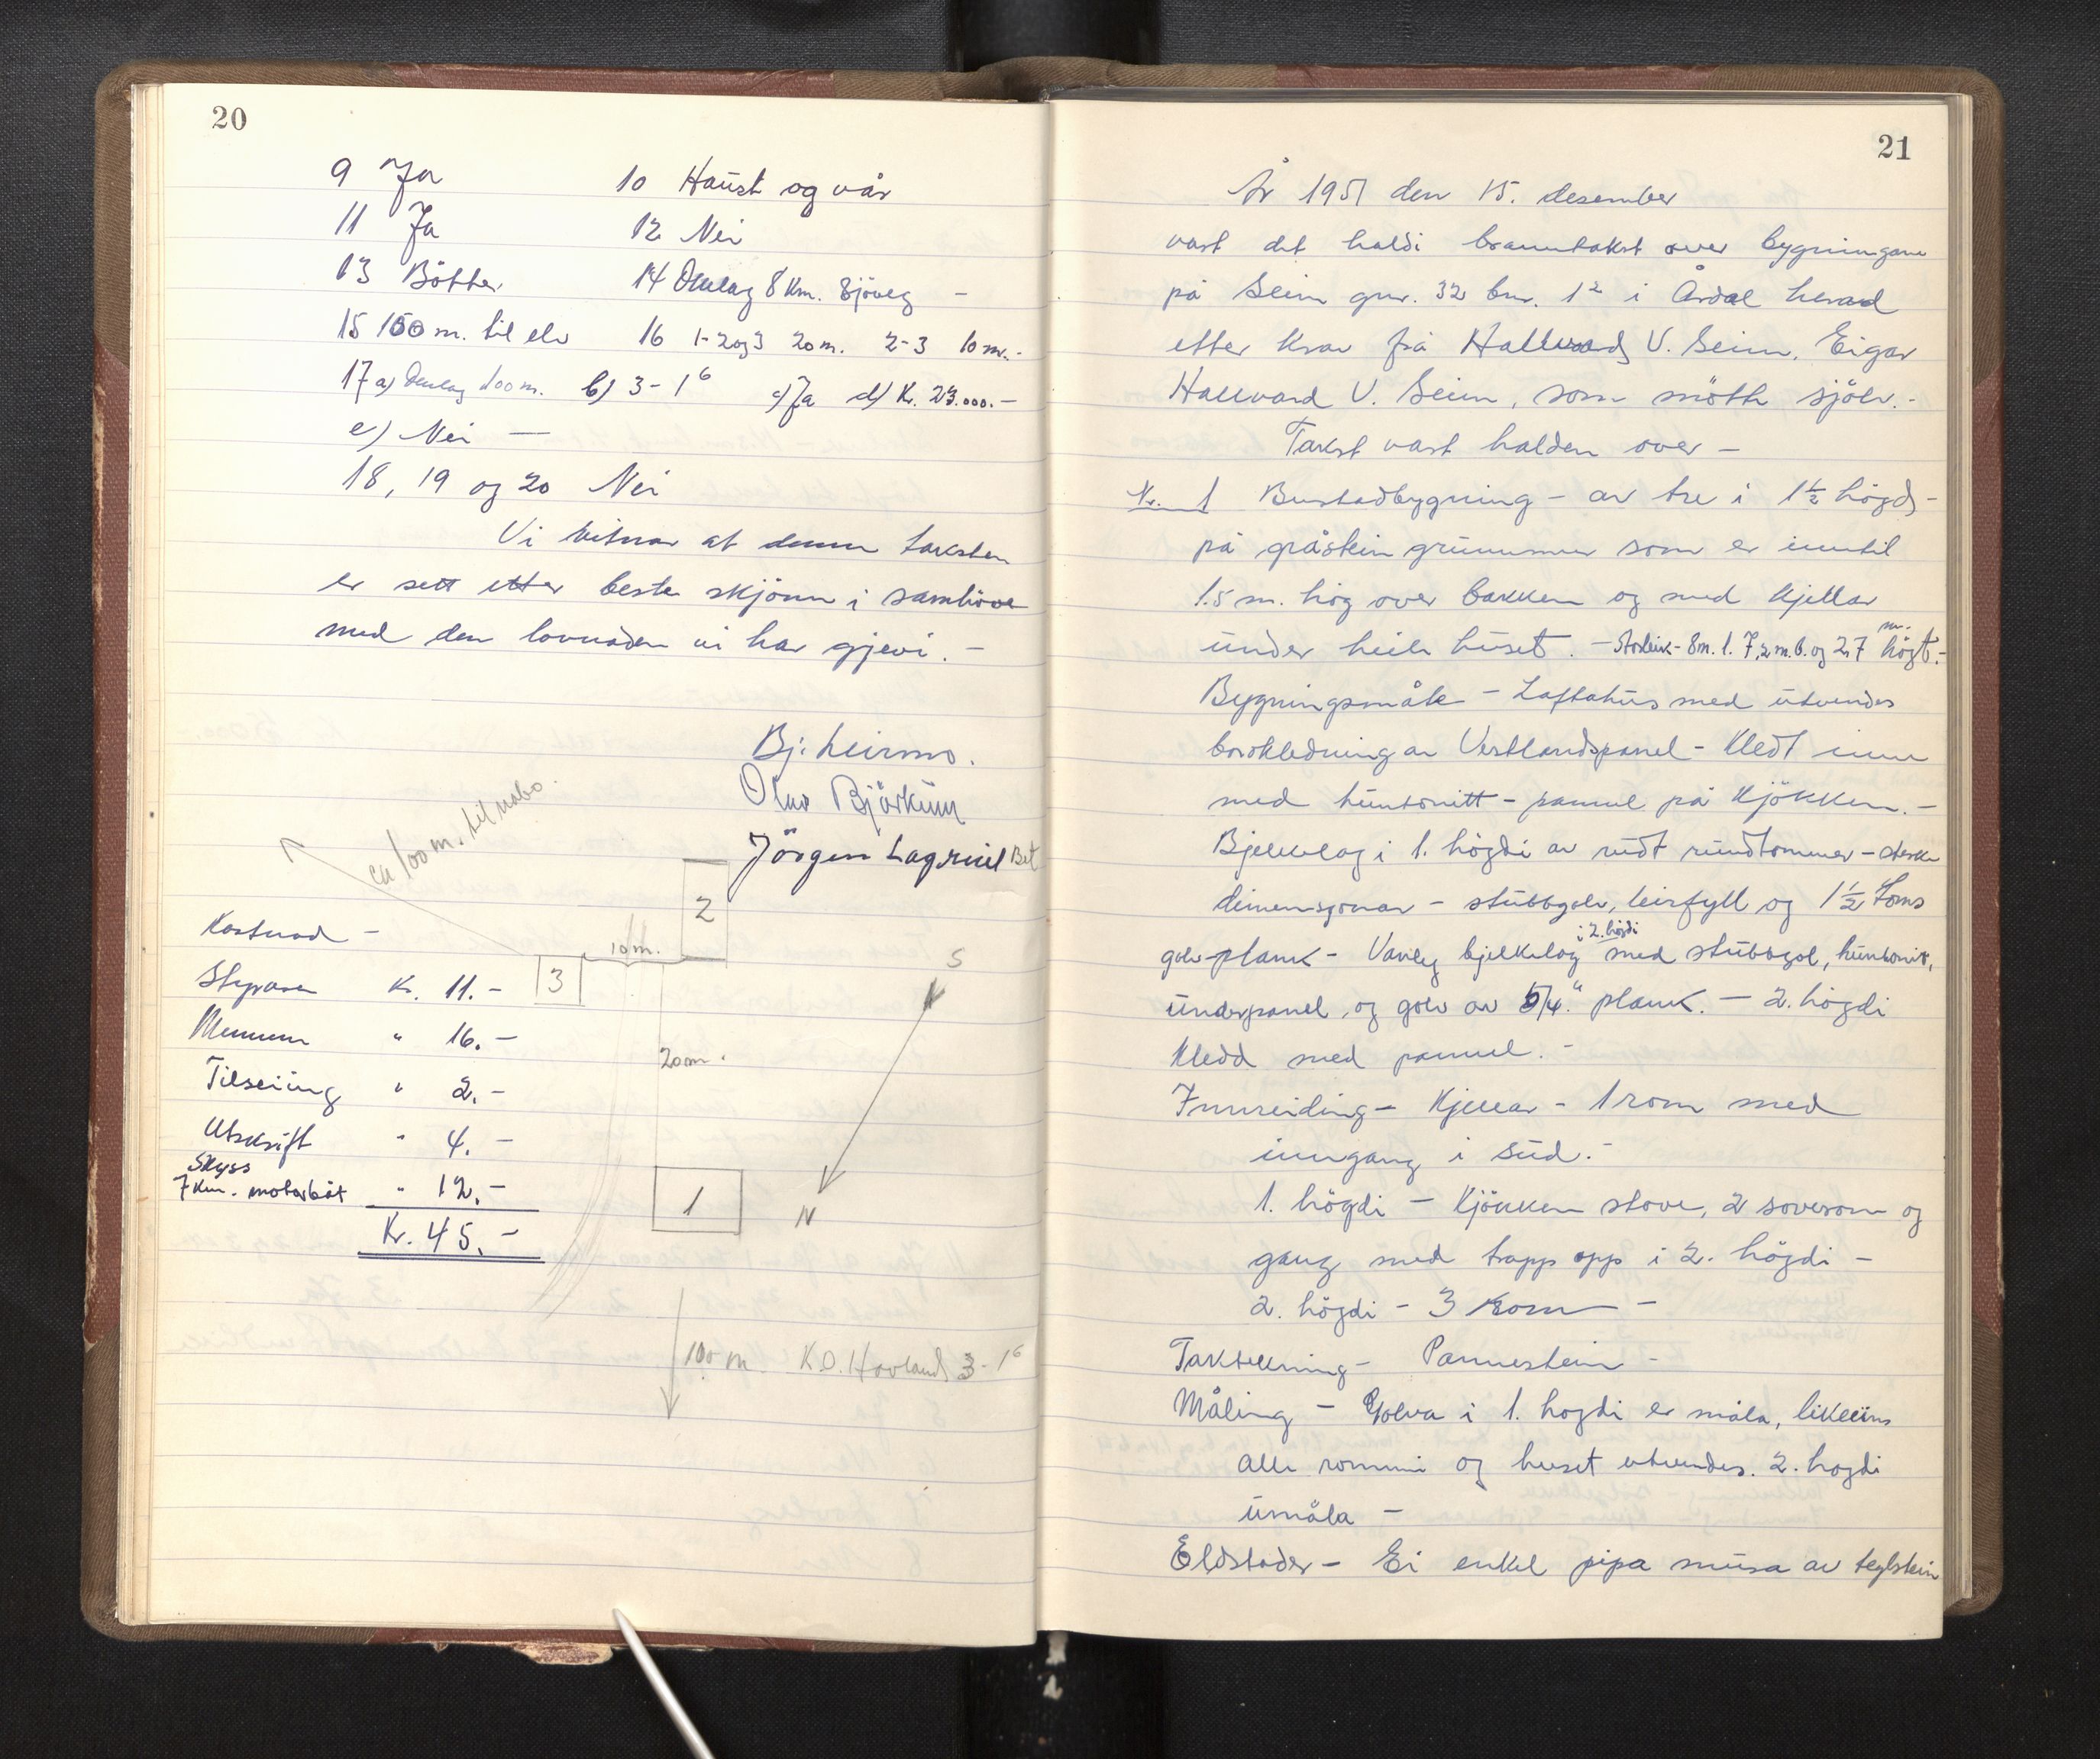 20
9 Ja 10 Haust og vår
11 Ja 12 Nei
13 Bötter. 14 Omlag 8 km. Sjöveg –
15 150 m. til elv 16 1-2 og 3 20 m. 2-3 10 m.-
17 a) Omlag 100 m. b) 3-1⁶ c) Ja d) Kr. 23.000.-
e) Nei —
18, 19 og 20 Nei
Vi vitnar at denne taksten
er sett etter beste skjönn i samhöve
med den lovnaden vi har gjevi. –
Bj. Leirmo.
Olav Björkum
Jörgen Lagreid Bet
ca 100 m. til nabo.
2
Kostnad –
10 m.
3
S
Skyvaren Kr. 11.-
Mennene " 16.-
20 m.
Tilseiing " 2.-
Utskrift " 4.-
Skyss
7 km. motorbåt " 12.-
1
N
Kr. 45.-
100 m. K.O. Hovland 3-1⁶
21
År 1951 den 15. desember
vart det haldi branntakst over bygningane
på Seim gnr. 32 bnr. 1² i Årdal herad
etter krav frå Hallvard V. Seim. Eigar
Hallvard V. Seim, som mötte sjölv.-
Takst vart halden over –
Nr. 1 Bustadbygning – av tre i 1½ högd –
på gråstein grunnmur som er inntil
1.5 m. hög over bakken og med kjellar
under heile huset. – Storleik - 8 m. l. 7,2 m. b. og 2,7 m. högt.-
Bygningsmåte – Laftahus med utvendes
bordkledning av Vestlandspanel – Kledt inne
med huntonitt – pannel på kjökken. –
Bjelkelag i 1. högdi av rudt rundtommer – sterke
dimensjonar – stubbgolv, leirfyll og 1½ toms
golv-plank – Vanleg bjelkelag i 2. högdi med stubbgol, huntonit,
underpanel, og golv av 5/4" plank. – 2. högdi
kledd med pannel. –
Innreiding – Kjellar – 1 rom med
inngang i sud. –
1. högdi – Kjökken stove, 2 soverom og
gang med trapp opp i 2. högdi –
2. högdi – 3 rom –
Taktekning – Pannestein –
Måling – Golva i 1. hogdi er måla, likeeins
alle rommi og huset utvendes. 2. hogdi
umåla –
Eldstader – Ei enkel pipa mura av teglstein